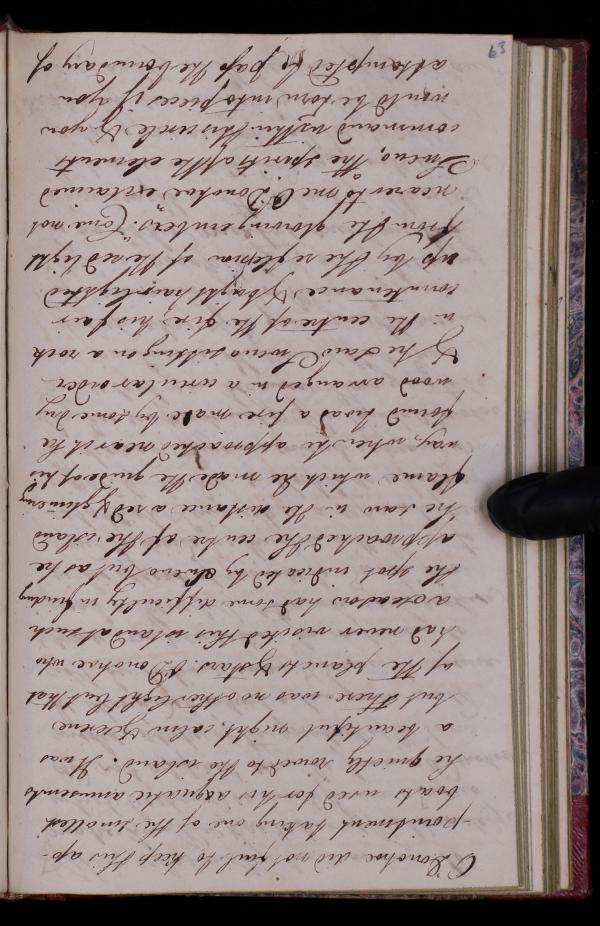 O Donohoe did not fail to keep this ap-
-pointment taking one of the smallest
boats used for his aquatic amusements
he quietly rowed to the island. It was
a beautiful night, calm & serene
but there was no other light but that
of the planets & stars O Donohoe who
had never visited this island at such
a season had some difficulty in finding
the spot indicated by but as he
approached the centre of the island
he saw in the distance a red & glimmering
flame which he made the guide of his
way, when he approached near it he
found twas a fire made by some dry
wood arranged in a circular order
& he saw sitting on a rock
in the centre of the fire, his fair
countenance & bright hair lighted
up by the reflexion of the red light
from the glowing embers. "Come not
nearer to me O'Donohoe" exclaimed
the spirits of the elements
command within this circle & you
would be torn into pieces if you
attempted to pass the boundary of
63